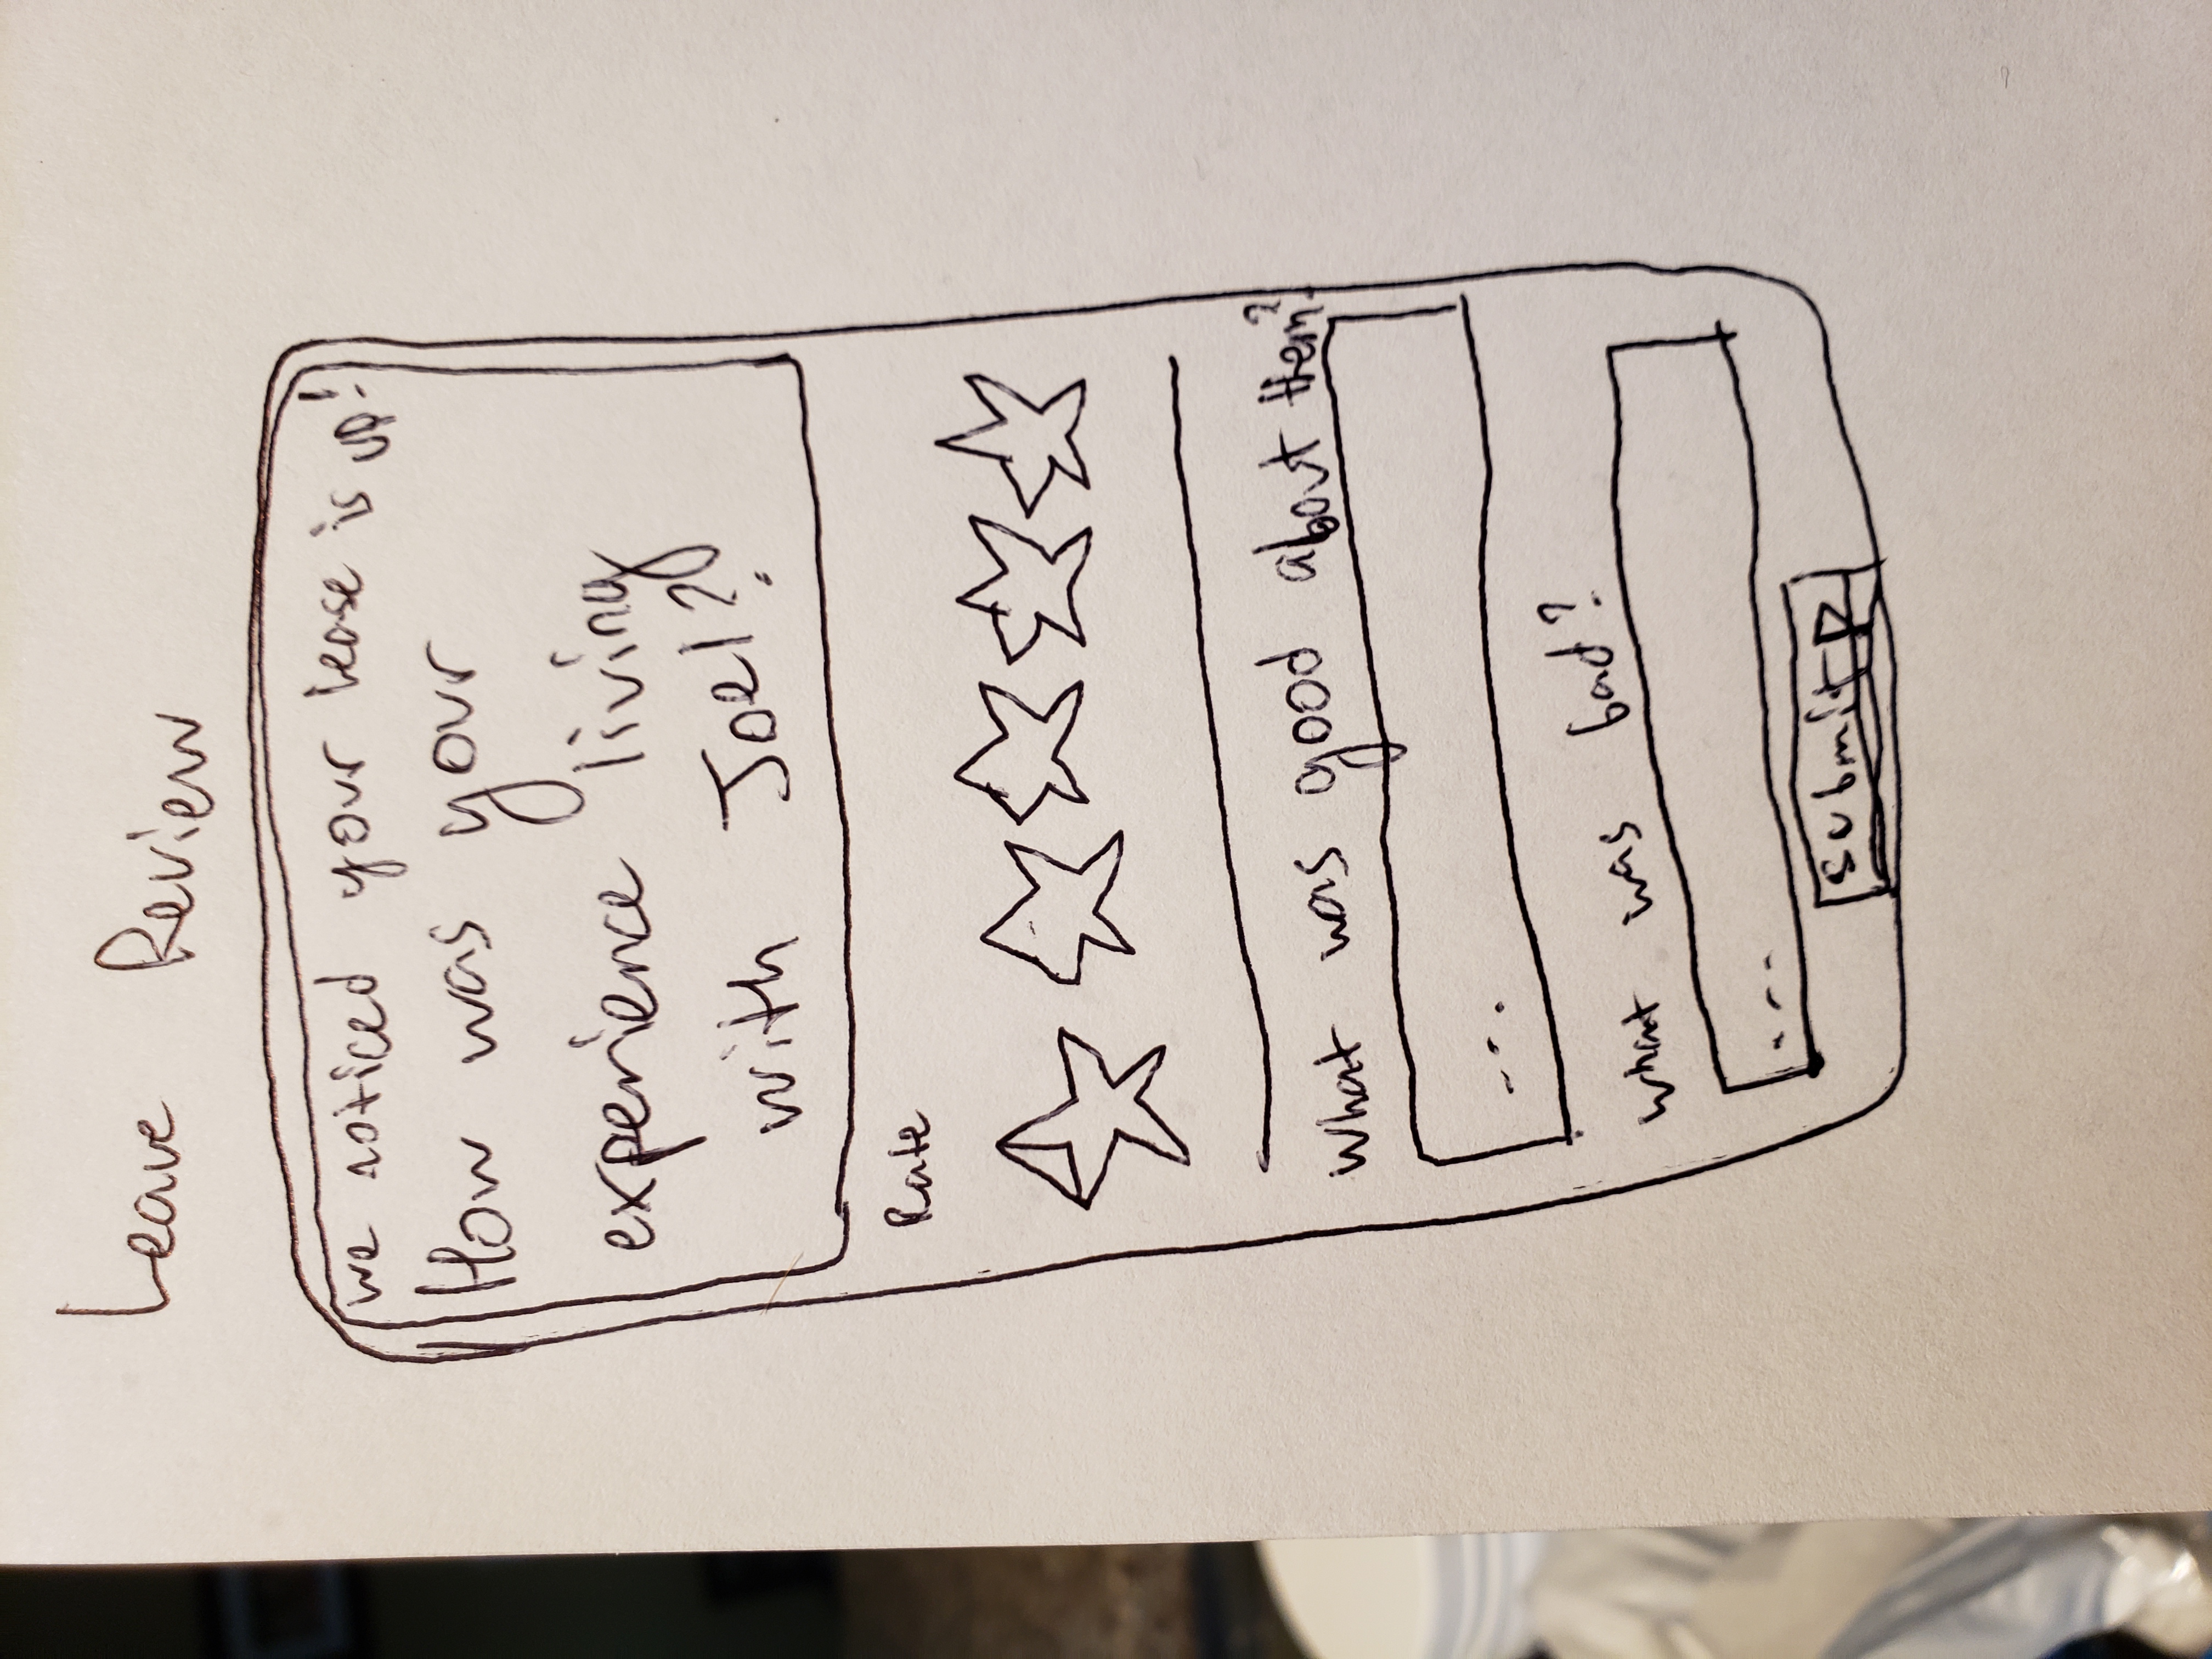 Leave Review
we noticed your lease is up!
How was your
experience living
with Joel?
Rate
What was good about them?
...
what was bad?
...
submit